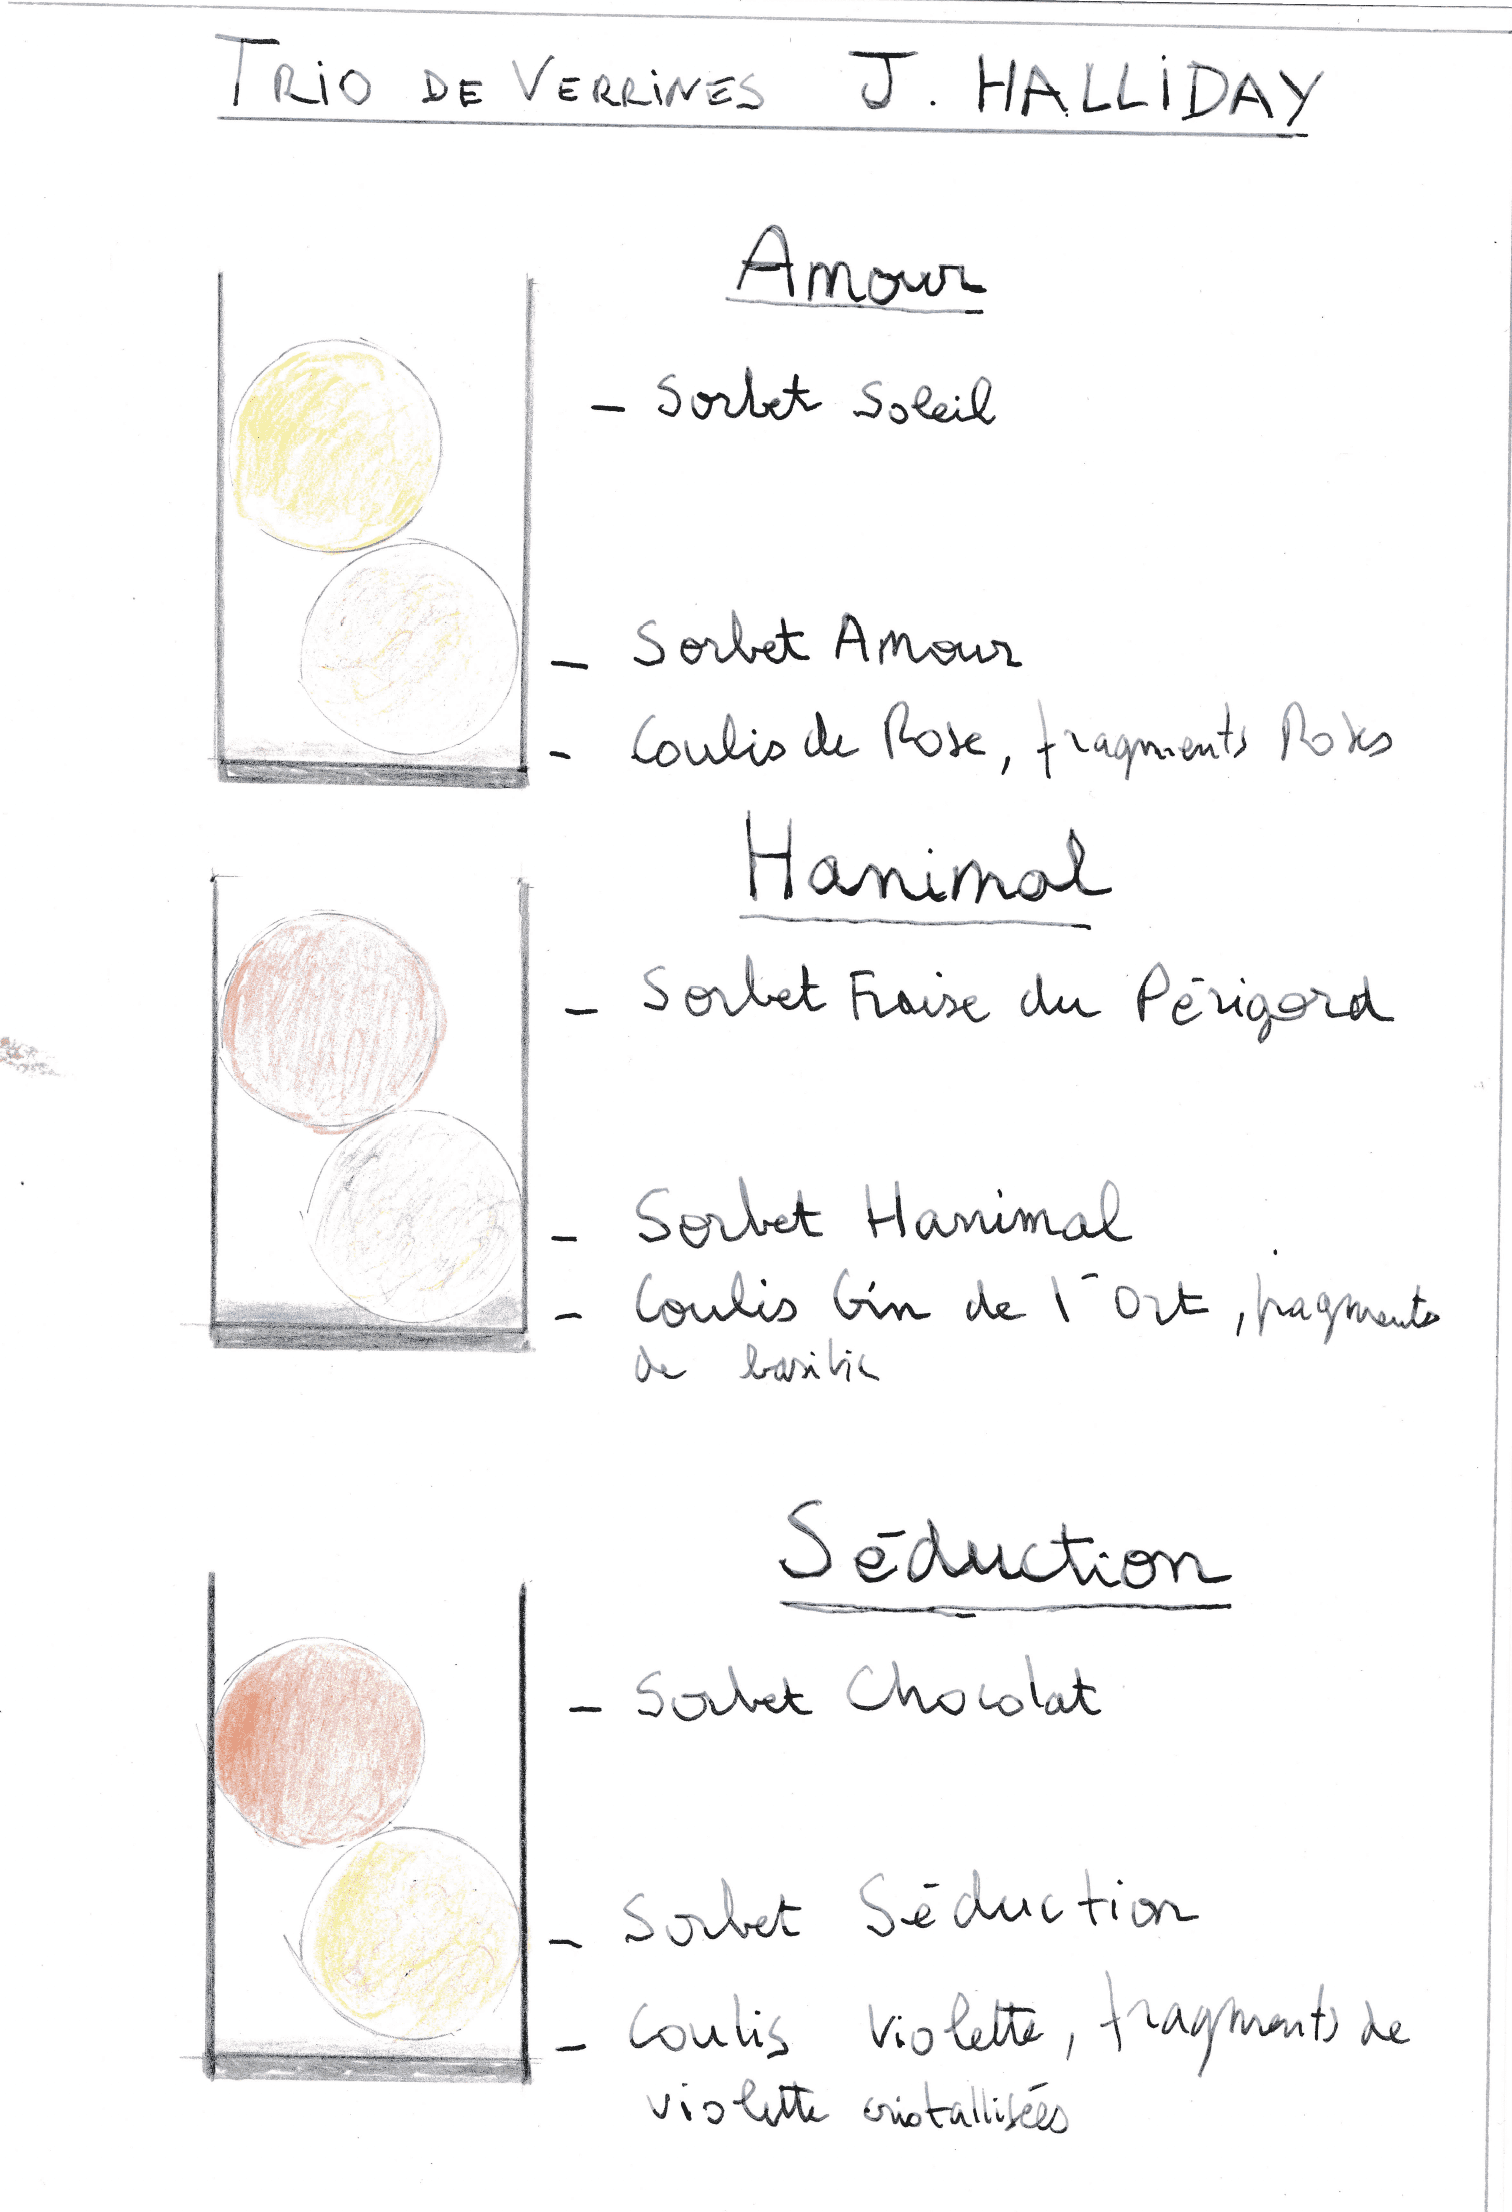 TRiO DE VERRiNES J. HALLiDAY
Amour
- Sorbet Soleil
- Sorbet Amour
- Coulis de Rose, fragments Roses
Hanimal
- Sorbet Fraise du Périgord
- Sorbet Hanimal
- Coulis Gin de l'Ort, fragments
de basilic
Séduction
- Sorbet Chocolat
- Sorbet Séduction
- Coulis Violette, fragments de
violette cristallisées